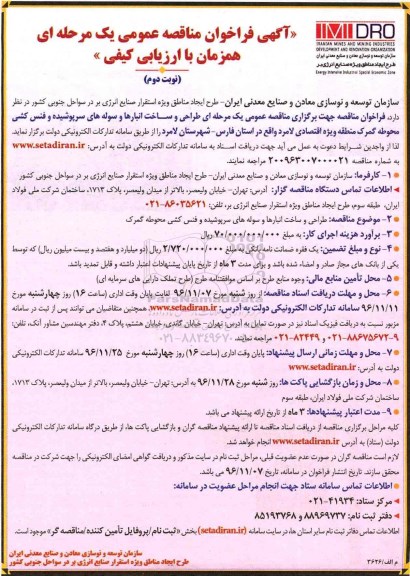 IMIDRO
IRANIAN MINES AND MINING INDUSTRIES
DEVELOPMENT AND RENOVATION ORGANIZATION
سازمان توسعه و نوسازی معادن و صنایع معدنی ایران
طرح ایجاد مناطق ویژه صنایع انرژی بر
Energy Intensive Industries Special Economic Zone
«آگهی فراخوان مناقصه عمومی یک مرحله ای
همزمان با ارزیابی کیفی»
(نوبت دوم)
سازمان توسعه و نوسازی معادن و صنایع معدنی ایران- طرح ایجاد مناطق ویژه استقرار صنایع انرژی بر در سواحل جنوبی کشور در نظر
دارد، فراخوان مناقصه جهت برگزاری مناقصه عمومی یک مرحله ای طراحی و ساخت انبارها و سوله های سرپوشیده و فنس کشی
محوطه گمرک منطقه ویژه اقتصادی لامرد واقع در استان فارس- شهرستان لامرد را از طریق سامانه تدارکات الکترونیکی دولت برگزار نماید.
لذا از واجدین شرایط دعوت به عمل می آید جهت دریافت اسناد به سامانه تدارکات الکترونیکی دولت به آدرس: www.setadiran.ir
به شماره مناقصه ۲۰۰۹۶۳۰۰۷۰۰۰۰۲۱ مراجعه نمایند.
۱- کارفرما: سازمان توسعه و نوسازی معادن و صنایع معدنی ایران- طرح ایجاد مناطق ویژه استقرار صنایع انرژی بر در سواحل جنوبی کشور
اطلاعات تماس دستگاه مناقصه گزار: آدرس: تهران- خیابان ولیعصر، بالاتر از میدان ولیعصر، پلاک ۱۷۱۳، ساختمان شرکت ملی فولاد
ایران، طبقه سوم، طرح ایجاد مناطق ویژه استقرار صنایع انرژی بر، تلفن: ۸۶۰۳۵۶۲۱-۰۲۱
۲- موضوع مناقصه: طراحی و ساخت انبارها و سوله های سرپوشیده و فنس کشی محوطه گمرک
۳- برآورد هزینه اجرای کار: به مبلغ ۷۰/۰۰۰/۰۰۰/۰۰۰ ریال
۴- نوع و مبلغ تضمین: یک فقره ضمانت نامه بانکی به مبلغ ۲/۷۲۰/۰۰۰/۰۰۰ ریال (دو میلیارد و هفتصد و بیست میلیون ریال) که توسط
یکی از بانک های مجاز صادر و امضاء شده باشد و برای مدت ۳ ماه از تاریخ پایان پیشنهادات اعتبار داشته و قابل تمدید باشد.
۵- محل تأمین منابع مالی: وجوه منابع طرح بر اساس موافقتنامه طرح (طرح تملک دارایی های سرمایه ای)
۶- محل و مهلت دریافت اسناد مناقصه: از روز شنبه مورخ ۹۶/۱۱/۰۷ لغایت پایان وقت اداری (ساعت ۱۶) روز چهارشنبه مورخ
۹۶/۱۱/۱۱ سامانه تدارکات الکترونیکی دولت به آدرس: www.setadiran.ir همچنین متقاضیان می توانند پس از ثبت در سامانه
مزبور نسبت به دریافت فیزیک اسناد نیز در صورت تمایل به آدرس: تهران- خیابان گاندی، خیابان هشتم، پلاک ۴، دفتر مهندسین مشاور آتک، تلفن:
۹-۸۸۶۷۵۶۷۲-۰۲۱ و ۸۲۴۴۹-۰۲۱ مراجعه نمایند.
۷- مهلت زمانی ارسال پیشنهاد: پایان وقت اداری (ساعت ۱۶) روز چهارشنبه مورخ ۹۶/۱۱/۲۵ سامانه تدارکات الکترونیکی
دولت به آدرس: www.setadiran.ir
۸- محل و زمان بازگشایی پاکت ها: روز شنبه مورخ ۹۶/۱۱/۲۸ به آدرس: تهران- خیابان ولیعصر، بالاتر از میدان ولیعصر، پلاک ۱۷۱۳،
ساختمان شرکت ملی فولاد ایران، طبقه سوم
۹- مدت اعتبار پیشنهادها: ۳ ماه از تاریخ ارائه پیشنهاد می باشد.
کلیه مراحل برگزاری مناقصه از دریافت اسناد مناقصه تا ارائه پیشنهاد مناقصه گران و بازگشایی پاکت ها، از طریق درگاه سامانه تدارکات الکترونیکی
دولت (ستاد) به آدرس www.setadiran.ir انجام خواهد شد.
لازم است مناقصه گران در صورت عدم عضویت قبلی، مراحل ثبت نام در سایت مذکور و دریافت گواهی امضای الکترونیکی را جهت شرکت در مناقصه
محقق سازند. تاریخ انتشار فراخوان در سامانه، تاریخ ۹۶/۱۱/۰۷ می باشد.
اطلاعات تماس سامانه ستاد جهت انجام مراحل عضویت در سامانه:
مرکز ستاد: ۴۱۹۳۴-۰۲۱
دفتر ثبت نام: ۸۸۹۶۹۷۳۷ و ۸۵۱۹۳۷۶۸
اطلاعات تماس دفاتر ثبت نام سایر استان ها، در سایت سامانه (setadiran.ir) بخش «ثبت نام/پروفایل تأمین کننده/مناقصه گر» موجود است.
سازمان توسعه و نوسازی معادن و صنایع معدنی ایران
طرح ایجاد مناطق ویژه استقرار صنایع انرژی بر در سواحل جنوبی کشور
م الف/۳۶۲۶